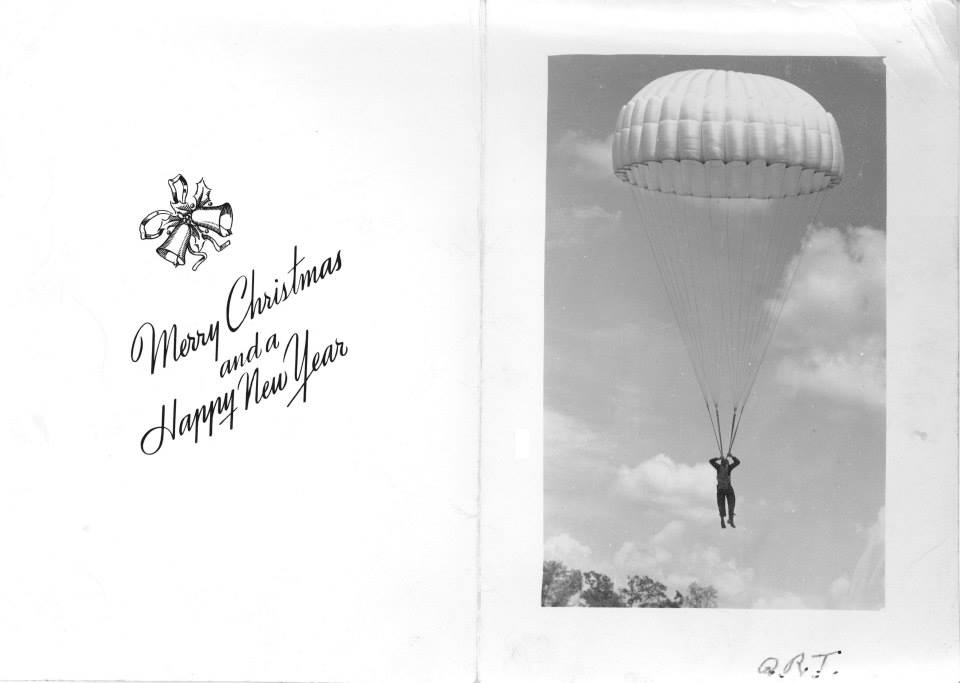 Merry Christmas
and a
Happy New Year
Q.R.T.